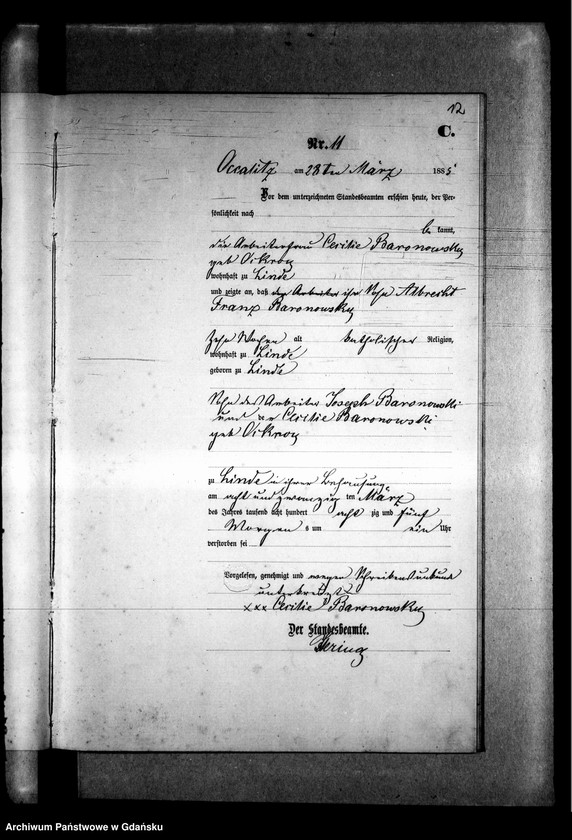 12
C.
Nr. 11
Occalitz am 28ten März 1885
Vor dem unterzeichneten Standesbeamten erschien heute, der Per-
sönlichkeit nach
be kannt,
die Arbeiterfrau Cecilie Baronowsky
geb Cikrou
wohnhaft zu Linde
und zeigte an, daß der Arbeiter ihr Sohn Albrecht
Franz Baronowsky
Zehn Wochen alt katholischer Religion,
wohnhaft zu Linde
geboren zu Linde
Sohn des Arbeiter Joseph Baronowski
und der Cecilie Baronowski
geb Cikrou
zu Linde in ihrer Behausung
am acht und zwanzig ten März
des Jahres tausend acht hundert acht zig und fünf
Morgens um ein Uhr
verstorben sei
Vorgelesen, genehmigt und wegen Schreibensunkunde
unterkreuzt
xxx Cecilie Baronowsky
Der Standesbeamte.
Archiwum Państwowe w Gdańsku